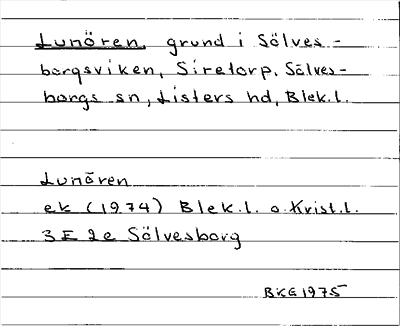 Lunören, grund i Sölves-
borgsviken, Siretorp, Sölves-
borgs sn, Listers hd, Blek.l.
Lunören
ek (1974) Blek.l. o. Krist.l.
3E 2e Sölvesborg
BKG 1975